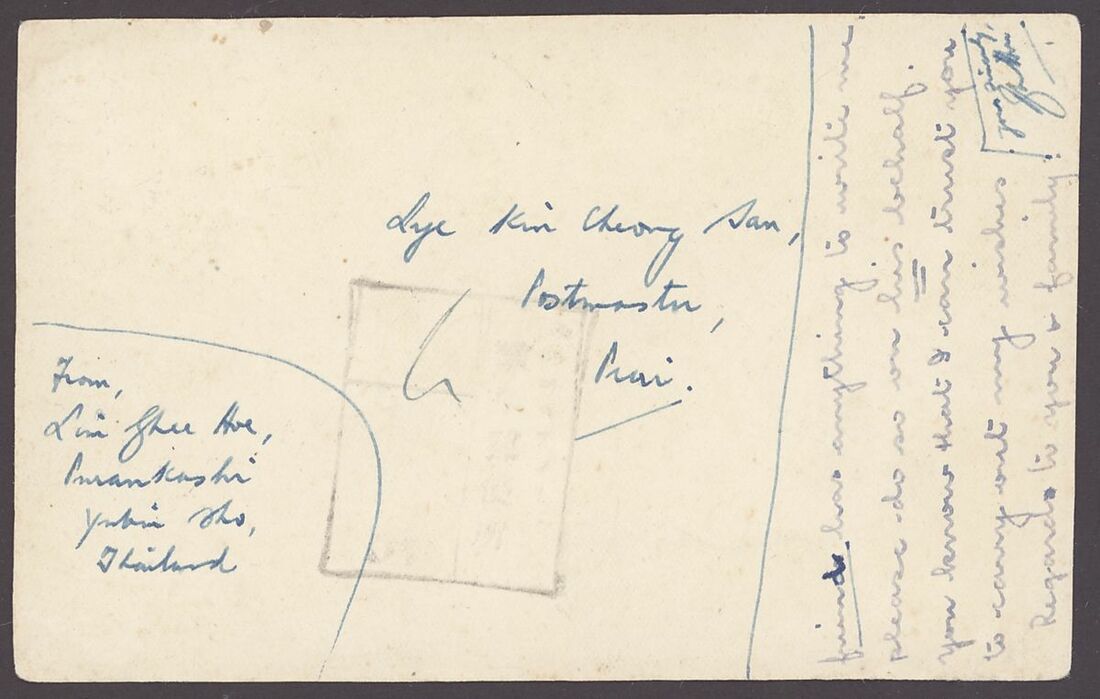 Lye Kin Cheong San,
Postmaster,
Prai.
From,
Lim Ghee Hoe,
Yubin Sho,
Thailand
friend has anything to write me
please do so on his behalf.
you know that I can trust you
to carry out my wishes!
Regards to you & family!